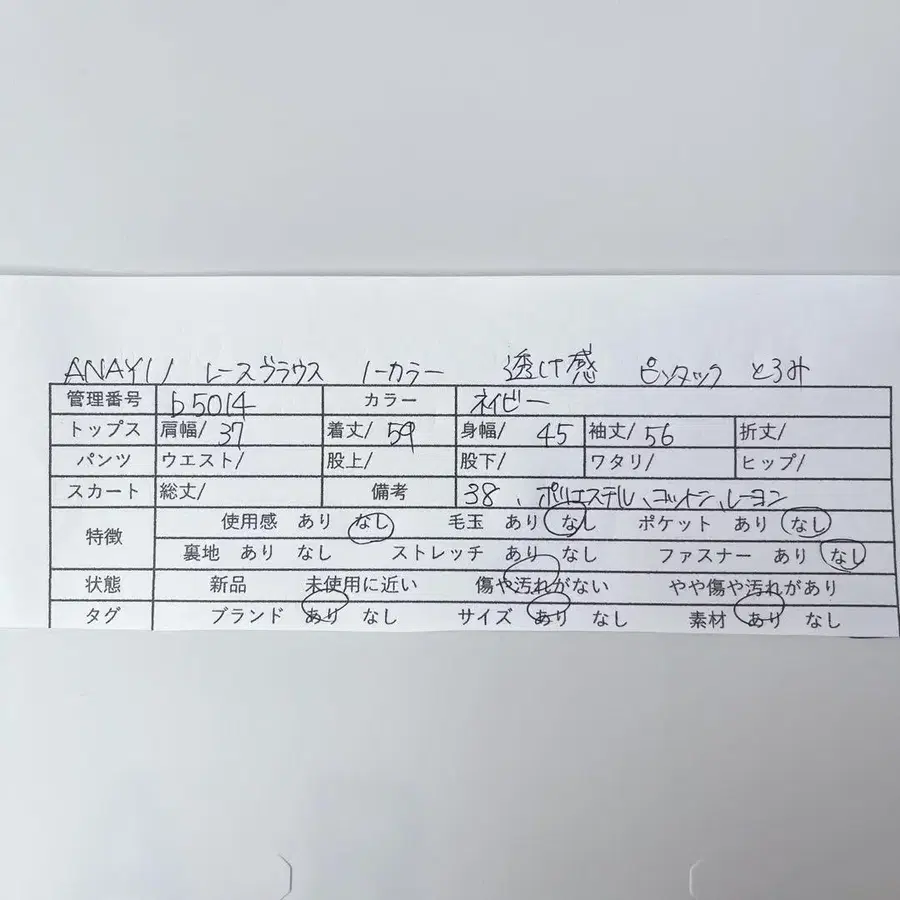 ANAYI レースブラウス ノーカラー 透け感 ピンタック とろみ
管理番号 b5014 カラー ネイビー
トップス 肩幅/ 37 着丈/ 59 身幅/ 45 袖丈/ 56 折丈/
パンツ ウエスト/ 股上/ 股下/ ワタリ/ ヒップ/
スカート 総丈/ 備考 38、ポリエステル、コットン、レーヨン
特徴 使用感 あり なし 毛玉 あり なし ポケット あり なし
裏地 あり なし ストレッチ あり なし ファスナー あり なし
状態 新品 未使用に近い 傷や汚れがない やや傷や汚れがあり
タグ ブランド あり なし サイズ あり なし 素材 あり なし